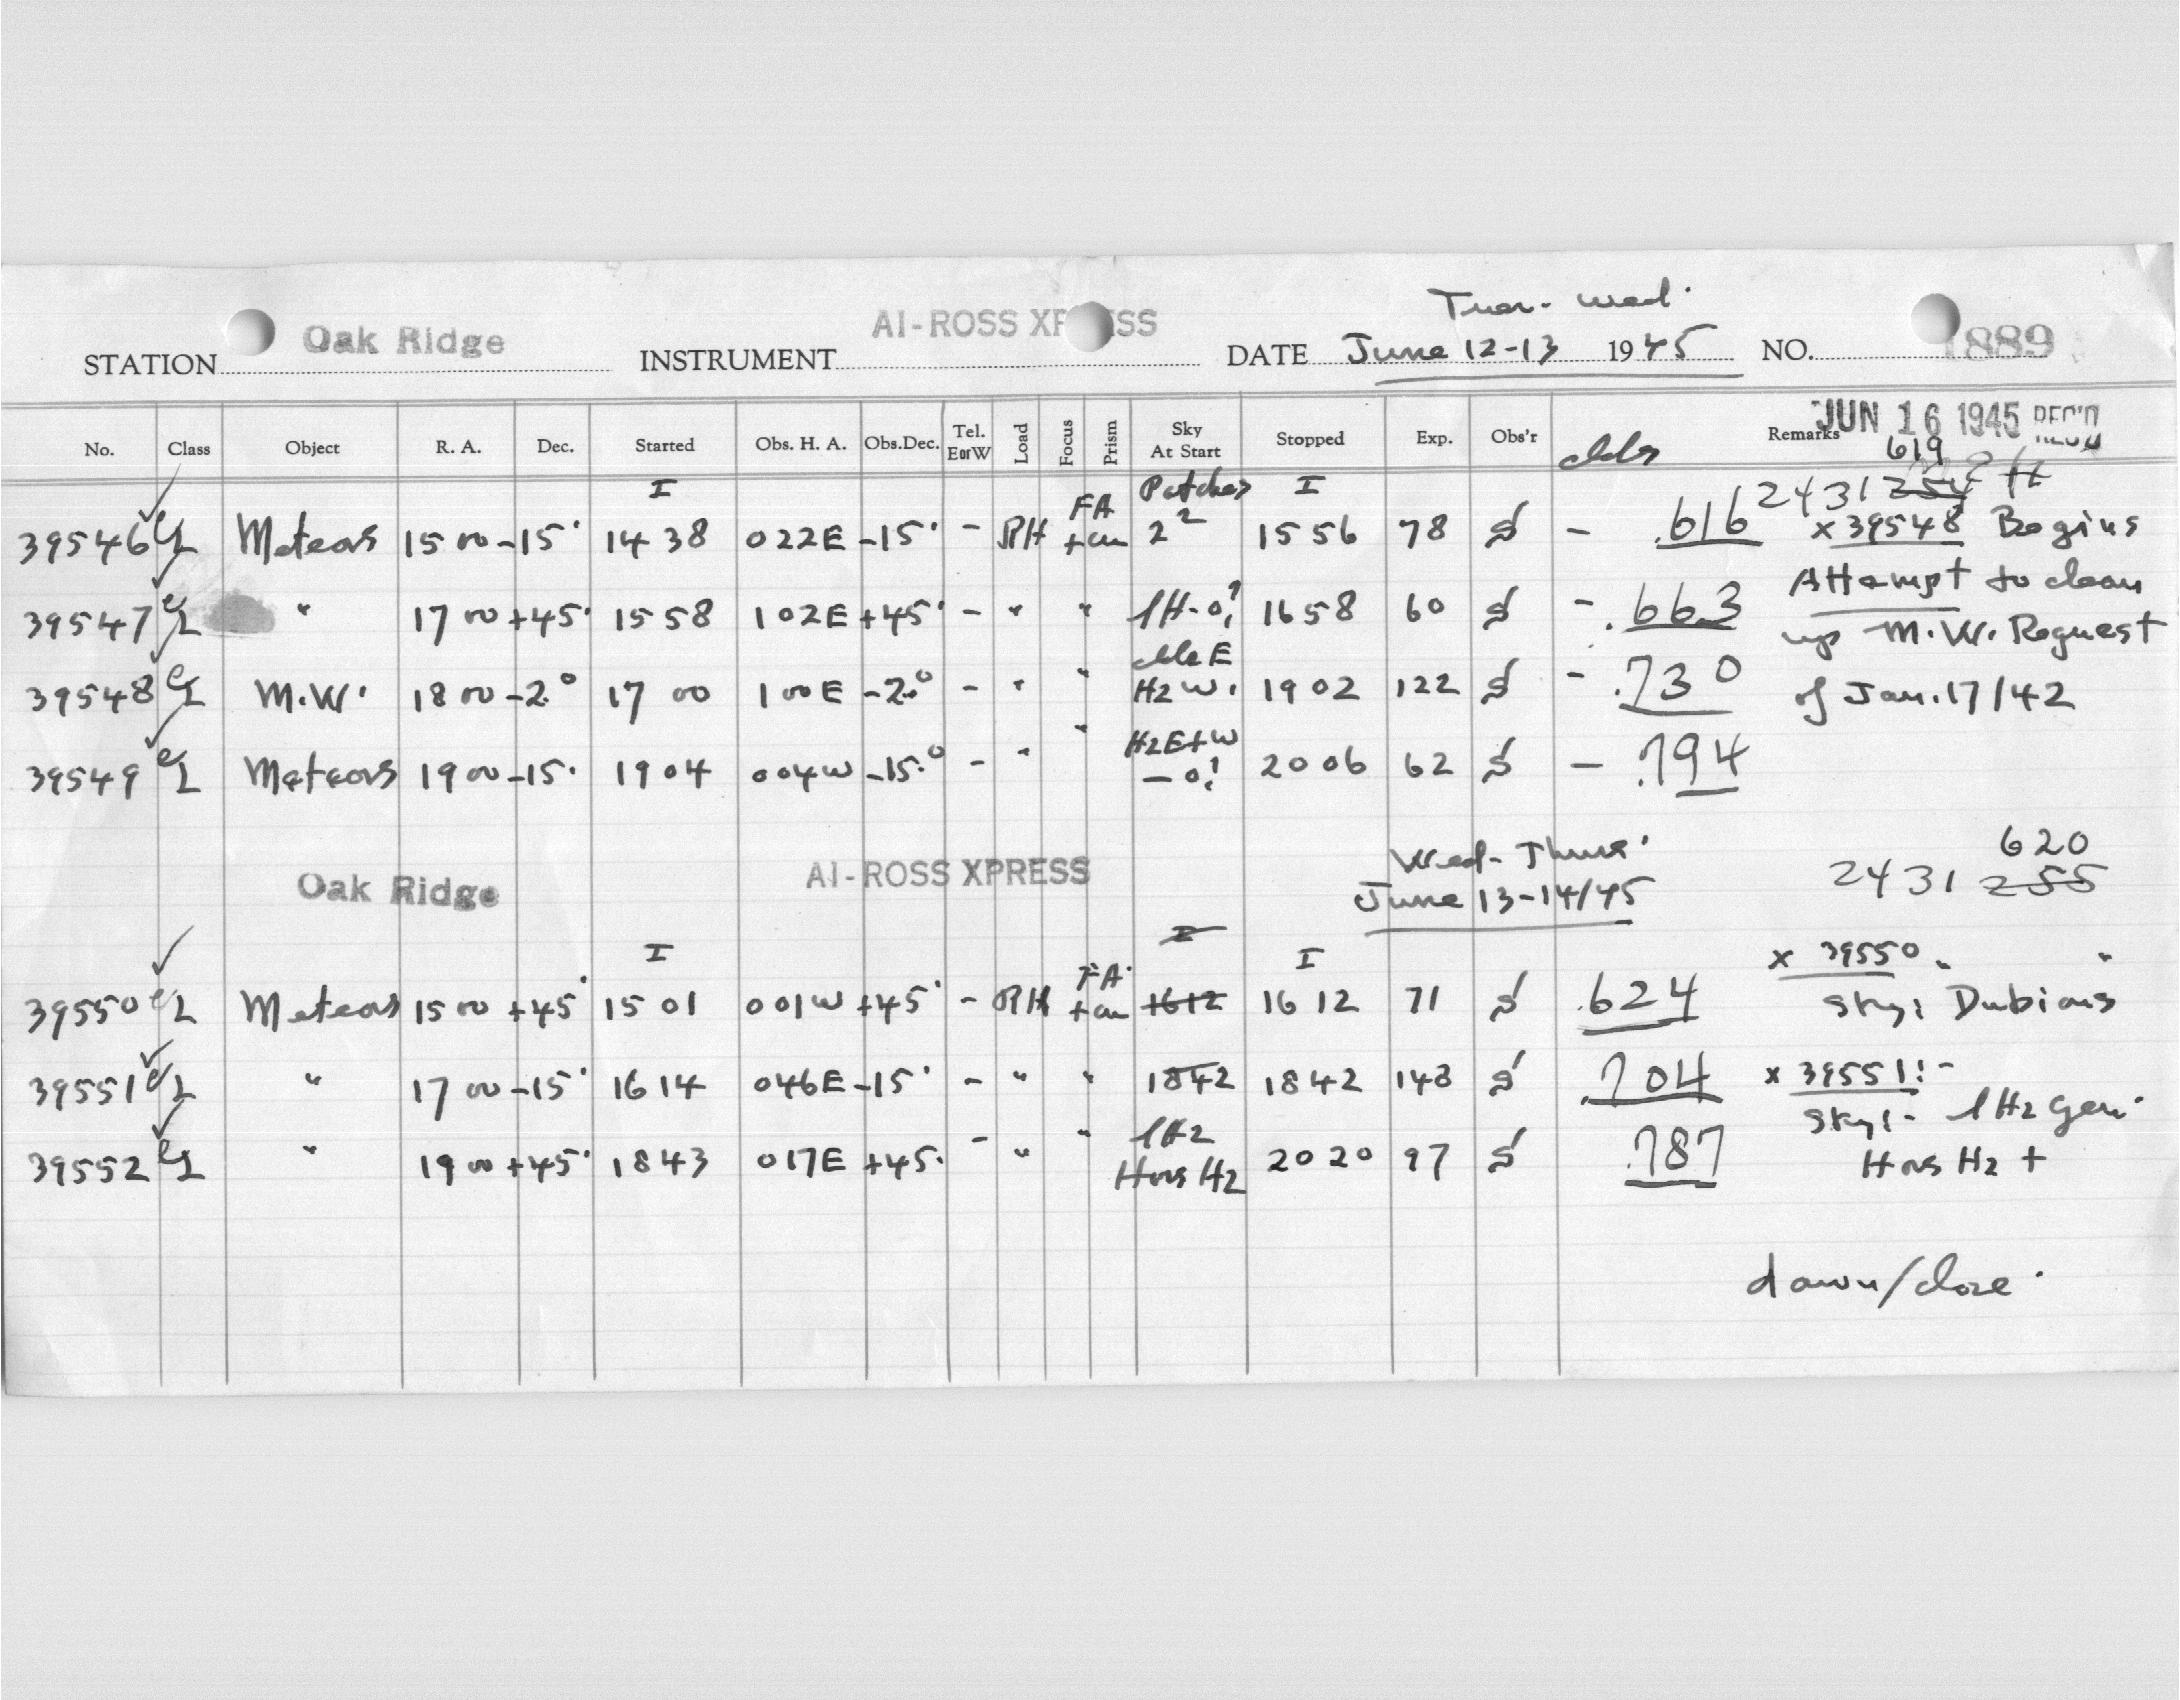 Tues - Wed.
STATION Oak Ridge INSTRUMENT AI-ROSS XPRESS DATE June 12-13 1945 NO. 1889
No. Class Object R. A. Dec. Started Obs. H. A. Obs.Dec. Tel. E or W Load Focus Prism Sky At Start Stopped Exp. Obs'r Remarks JUN 16 1945 REC'D
619
I Patches I 2431 254
39546 L Meteors 15 00 -15° 14 38 022E -15° - RH FA + cm 2² 15 56 78 - .616 x 39548 Begins
39547 L " 17 00 +45° 15 58 102E +45° - " " 1H-0? 16 58 60 - .663 Attempt to clean
up M.W. Request
39548 L M.W. 18 00 -2° 17 00 1 00E -2° - " " E H2 W. 19 02 122 - .730 of Jan. 17/42
39549 L Meteors 19 00 -15° 19 04 004W -15.° - " " H2E+W - 0? 20 06 62 - .794
Oak Ridge AI-ROSS XPRESS Wed - Thurs. 620
June 13-14/45 2431 255
I I I x 39550 " "
39550 L Meteors 15 00 +45° 15 01 001W +45° - RH FA + cm 1612 16 12 71 .624 Sky: Dubious
39551 L " 17 00 -15° 16 14 046E -15° - " " 1842 18 42 148 .704 x 39551: -
Sky: - 1H2 Gen.
39552 L " 19 00 +45° 18 43 017E +45° - " " 1H2 Hors H2 20 20 97 .787 Hors H2 +
dawn/close.